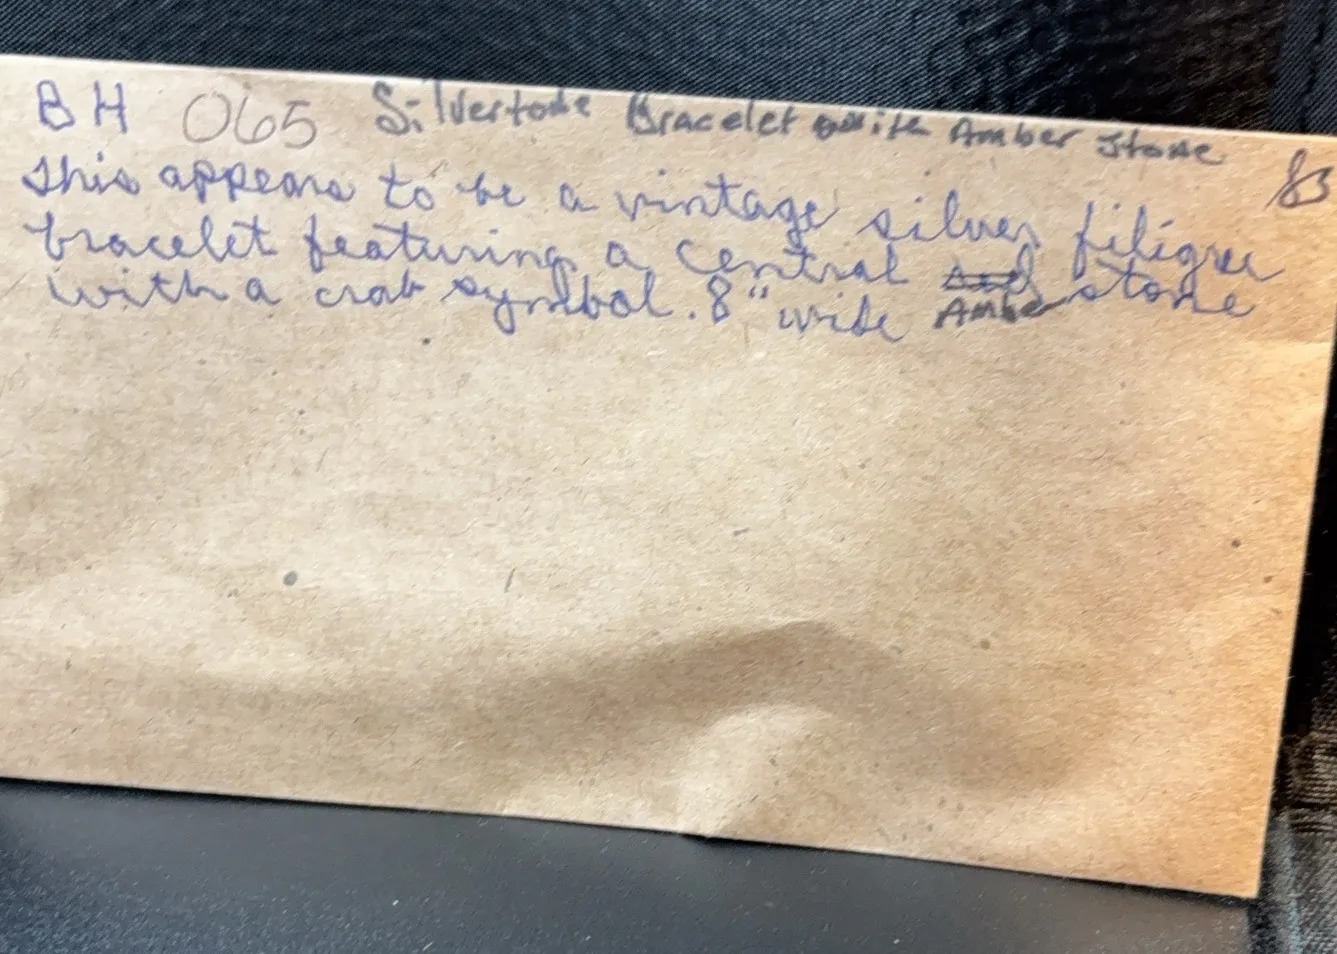 BH 065 Silvertone Bracelet with Amber Stone
This appears to be a vintage silver filigree
bracelet featuring a central Amber stone
with a crab symbol. 8" wide